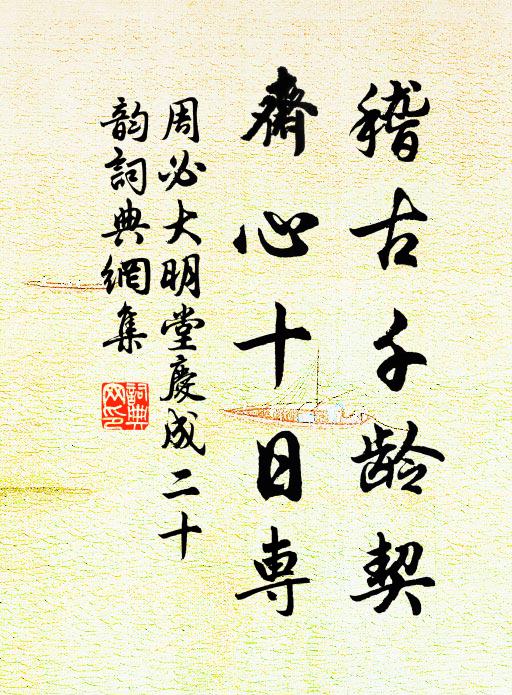 稽古千龄契
齋心十日専
周必大明堂慶成二十
韵詞典網集
詞典
网印